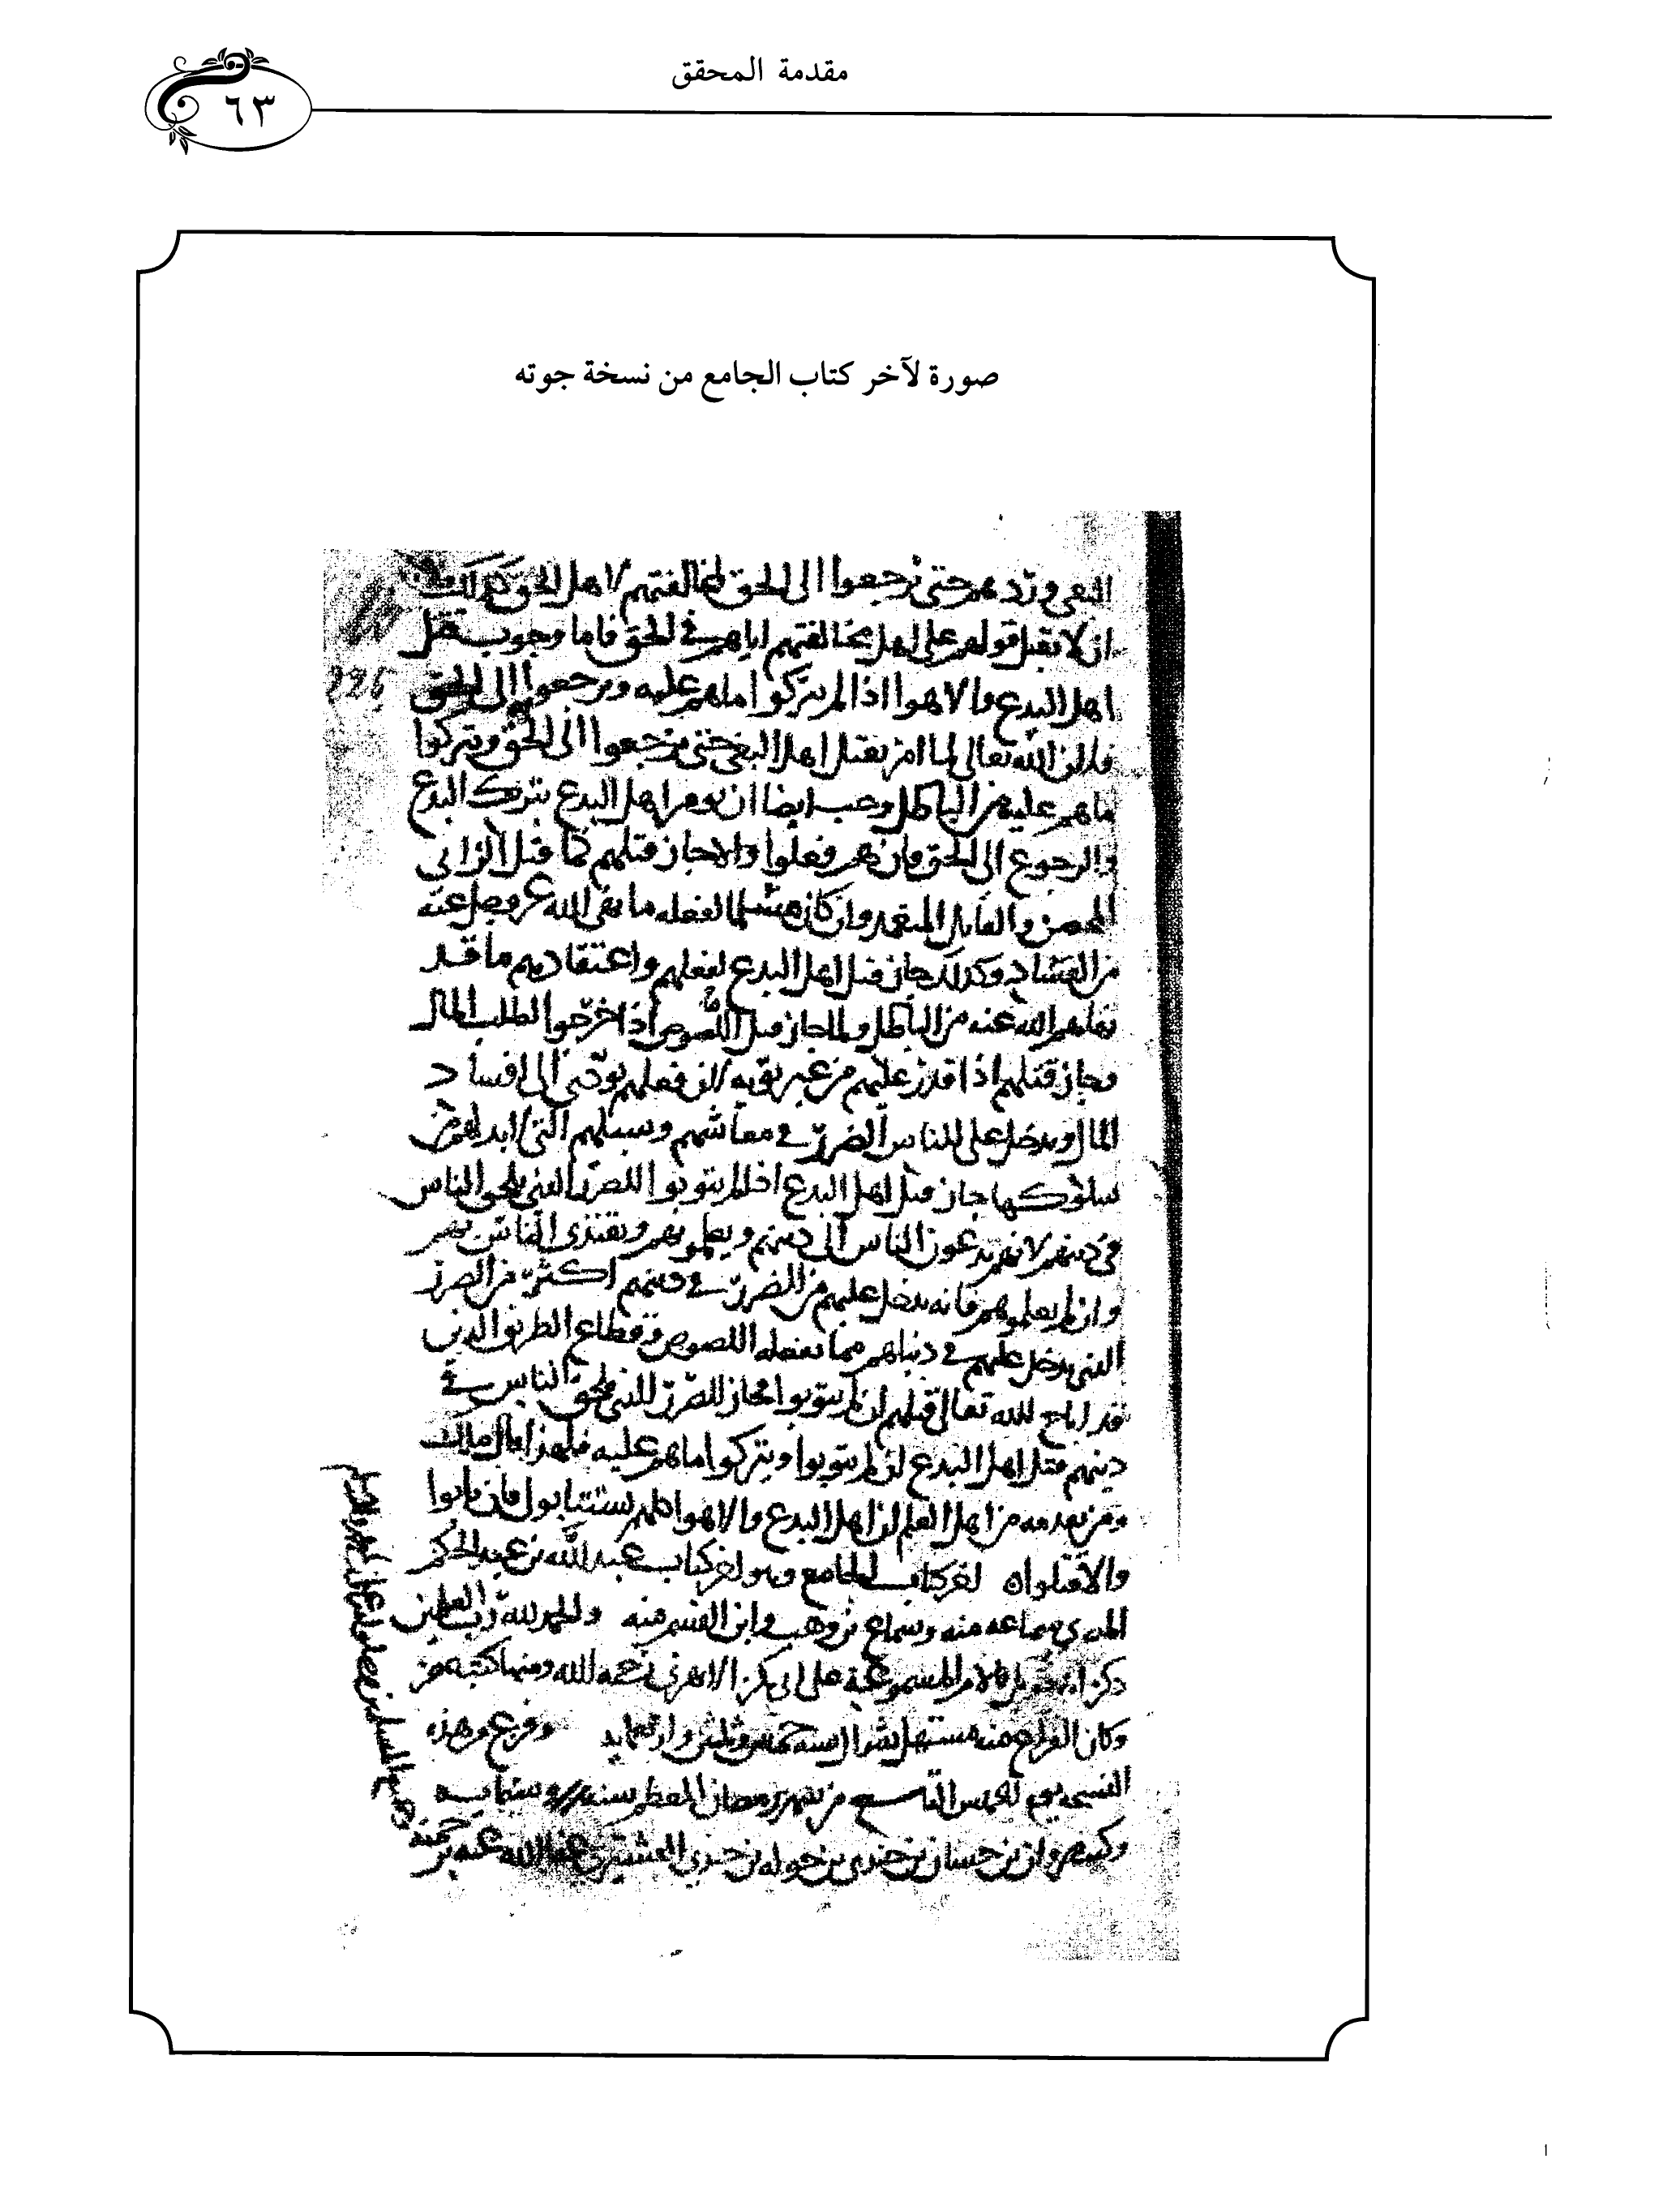 مقدمة المحقق
٦٣
صورة لآخر كتاب الجامع من نسخة جوته
حتى يرجعوا الى الحق لمخالفتهم لاهل الحق
ان لا تقبل قولهم على اهل مخالفتهم اياهم في الحق فاما وجوب قتل
اهل البدع والاهوا اذا لم يتركوا ما هم عليه ويرجعوا الى الحق
فلان الله تعالى لما امر بقتل اهل البغي حتى يرجعوا الى الحق ويتركوا
ما هم عليه من الباطل وجب ايضا ان يومر اهل البدع بترك البدع
والرجوع الى الحق فان هم فعلوا والا جاز قتلهم كما قتل الزاني
المحصن والقاتل المتعمد وان كان مسلما لفعله ما نهى الله عز وجل عنه
من الفساد وكذلك جاز قتل اهل البدع لفعلهم واعتقادهم ما قد
نهاهم الله عنه من الباطل ولما جاز قتل اللصوص اذا خرجوا لطلب المال
وجاز قتلهم اذا قدر عليهم من غير توبه لان فعلهم يودي الى افساد
المال ويدخل على الناس الضرر في معاشهم وسبيلهم التي لابد لهم من
سلوكها جاز قتل اهل البدع اذا لم يتوبوا للضرر الذي يلحق الناس
في دينهم لانهم يدعون الناس الى دينهم ويعلمونهم ويقتدى الناس بهم
وان لم يعلموهم فانه يدخل عليهم من الضرر في دينهم اكثر من الضرر
الذي يدخل عليهم في دنياهم مما يفعله اللصوص وقطاع الطريق الذين
قد اباح الله تعالى قتلهم ان لم يتوبوا فجاز للضرر الذي يلحق الناس في
دينهم قتل اهل البدع ان لم يتوبوا ويتركوا ما هم عليه فلهذا قال مالك
ومن تقدمه من اهل العلم ان اهل البدع والاهوا كلهم يستتابون فان تابوا
والا قتلوا اخر كتاب الجامع وهو اخر كتاب عبد الله بن عبد الحكم
سماعه منه وسماع بن وهب وابن القسم منه والحمد لله رب العلمين
المسموعة على ابي بكر الابهري رحمه الله ومنها كتبه
وكان الفراغ منه مستهل شوال سنه خمس وثلثين واربعمايه وفرغ من هذه
النسخه يوم الخميس التاسع من شهر رمضان المعظم سنه وستمايه
وكتبه مروان بن حسان بن بن بن عفا الله عنه